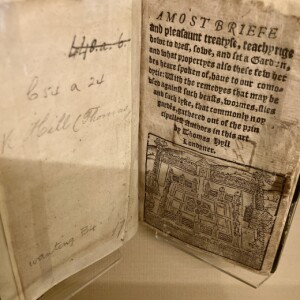 C54 a 24
Hill (Thomas
wanting E
A MOST BRIEFE
and pleasaunt treatyse, teachynge
howe to dress, sowe, and set a Garden,
and what propertyes also these few her
bes heare spoken of, haue to our como-
dytie: With the remedyes that may be
vsed against such beasts, wormes, flies
and such lyke, that commonly noy
gardēs, gathered out of the prin
cipallest Authors in this art
by Thomas Hyll
Londyner.